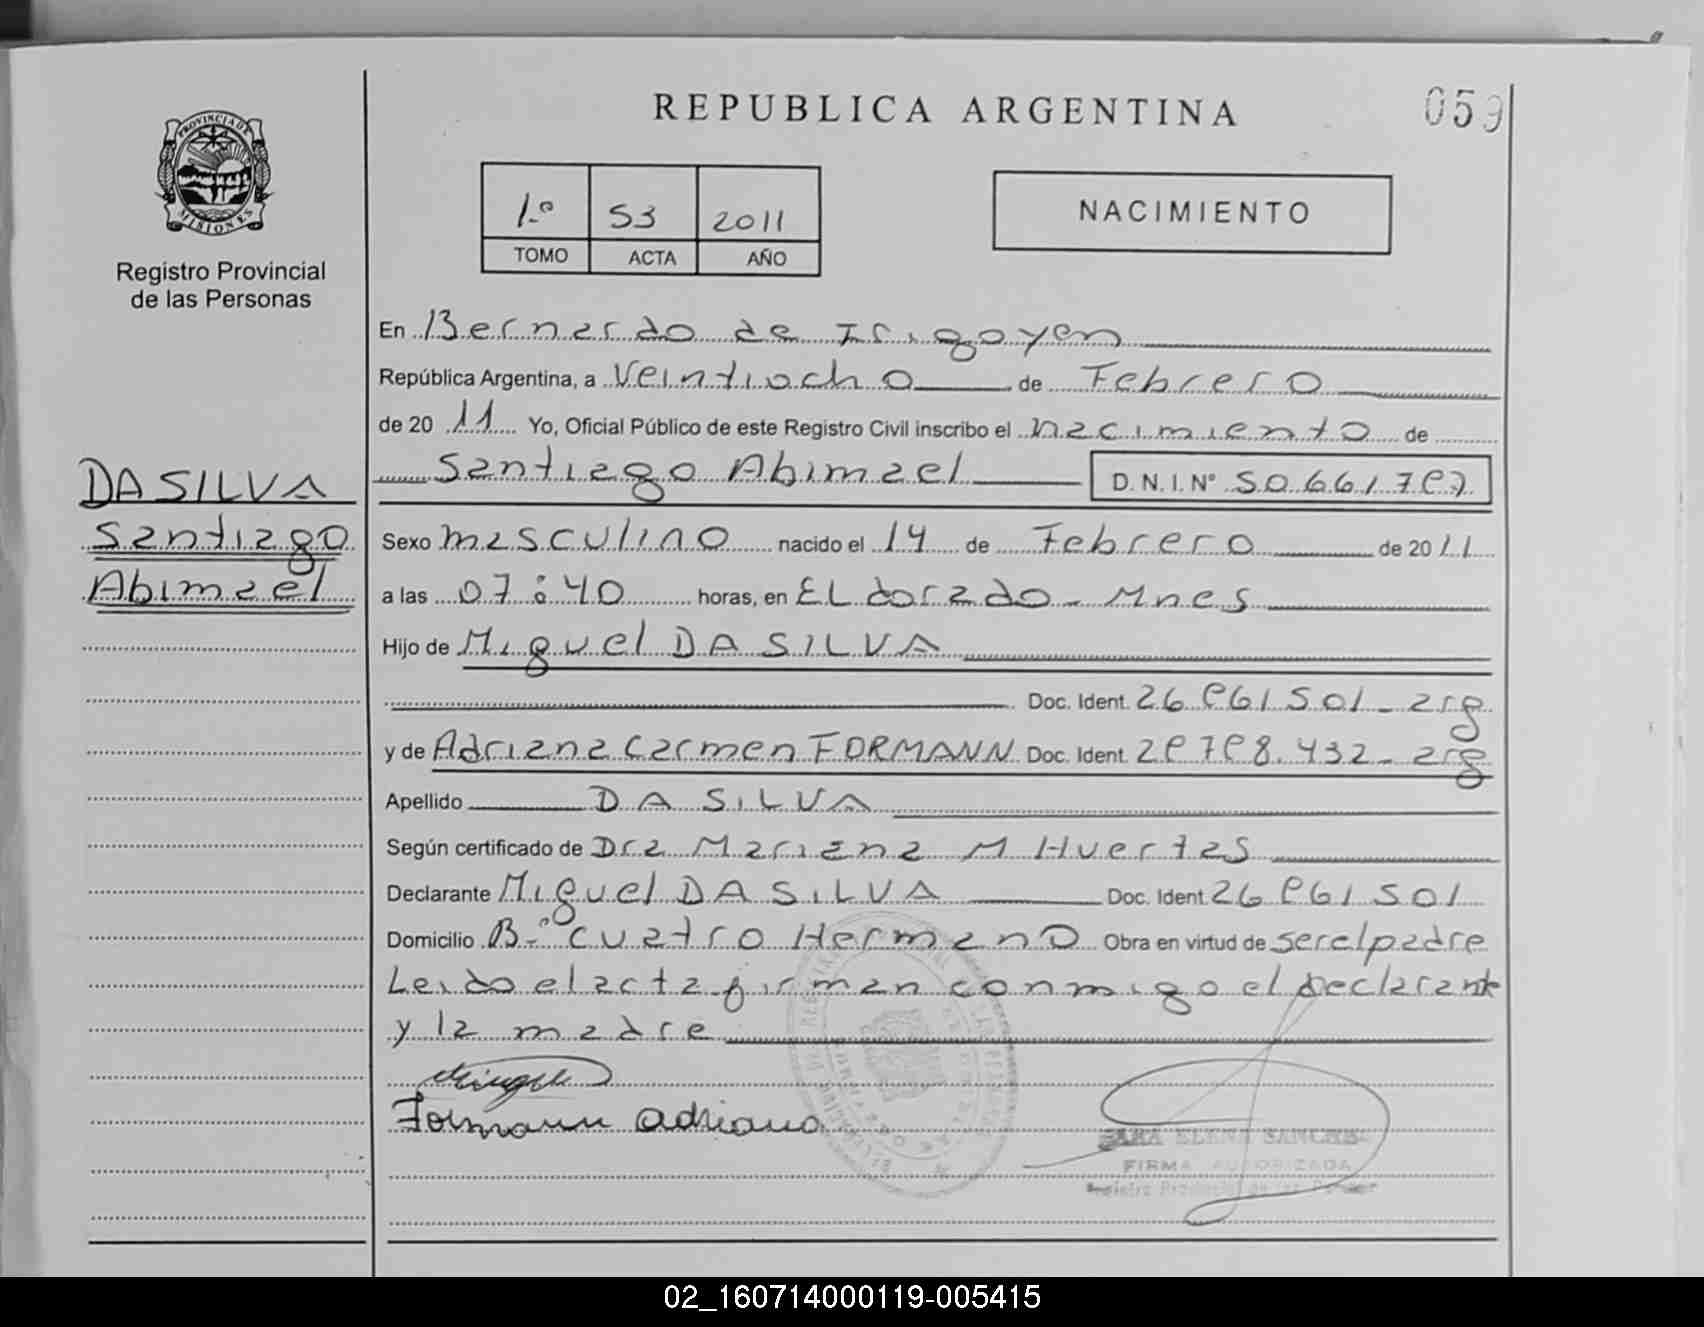 REPUBLICA ARGENTINA
059
PROVINCIA DE
MISIONES
Registro Provincial
de las Personas
1º 53 2011
TOMO ACTA AÑO
NACIMIENTO
En Bernardo de Irigoyen
República Argentina, a Veintiocho de Febrero
de 2011 Yo, Oficial Público de este Registro Civil inscribo el nacimiento de
Santiago Abimael D.N.I. Nº 50.661.787
DA SILVA
Santiago
Abimael
Sexo masculino nacido el 14 de Febrero de 2011
a las 07:40 horas, en ELdorado - Mnes
Hijo de Miguel DA SILVA
Doc. Ident. 26 861 501 - arg
y de Adriana Carmen FORMANN Doc. Ident. 28 788.432 - arg
Apellido DA SILVA
Según certificado de Dra Mariana M Huertas
Declarante Miguel DA SILVA Doc. Ident 26 861 501
Domicilio Bº cuatro Hermano Obra en virtud de ser el padre
Leido el acta firman conmigo el Declarante
y la madre
Formann Adriana
SARA ELENA
FIRMA AUTORIZADA
Registro Provincial de las Personas
02_160714000119-005415